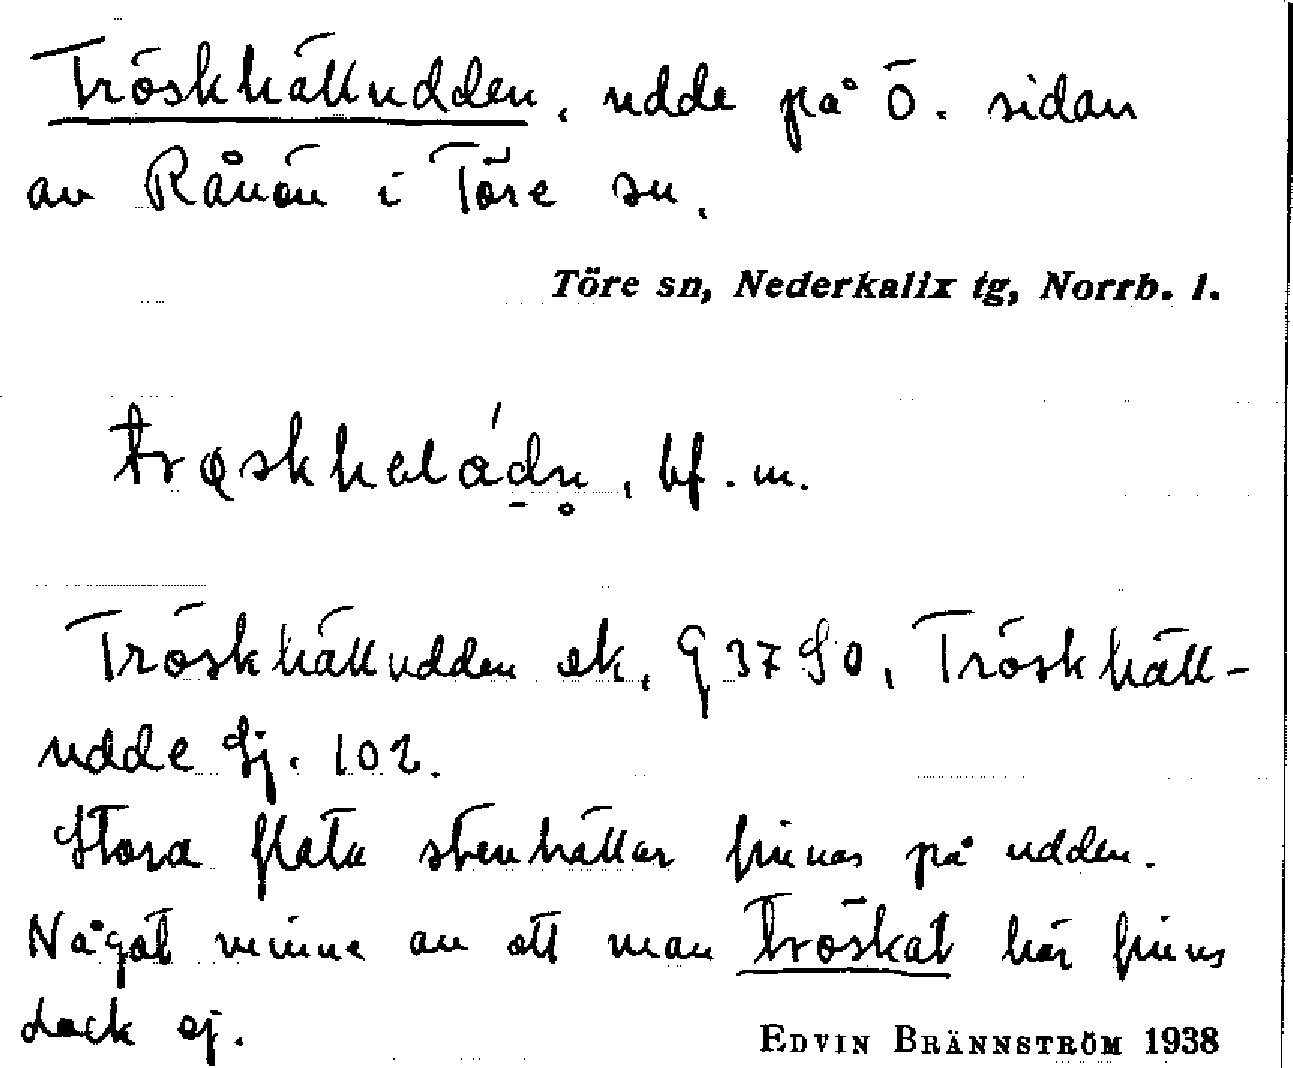 Tröskhälludden, udde på Ö. sidan
av Rånön i Töre sn.
Töre sn, Nederkalix tg, Norrb. l.
bf. m.
Tröskhälludden ek. 93790, Tröskhäll-
udde Sj. 102.
Stora flata stenhällar finnas på udden.
Något minne av att man tröskat här finns
dock ej.
EDVIN BRÄNNSTRÖM 1938